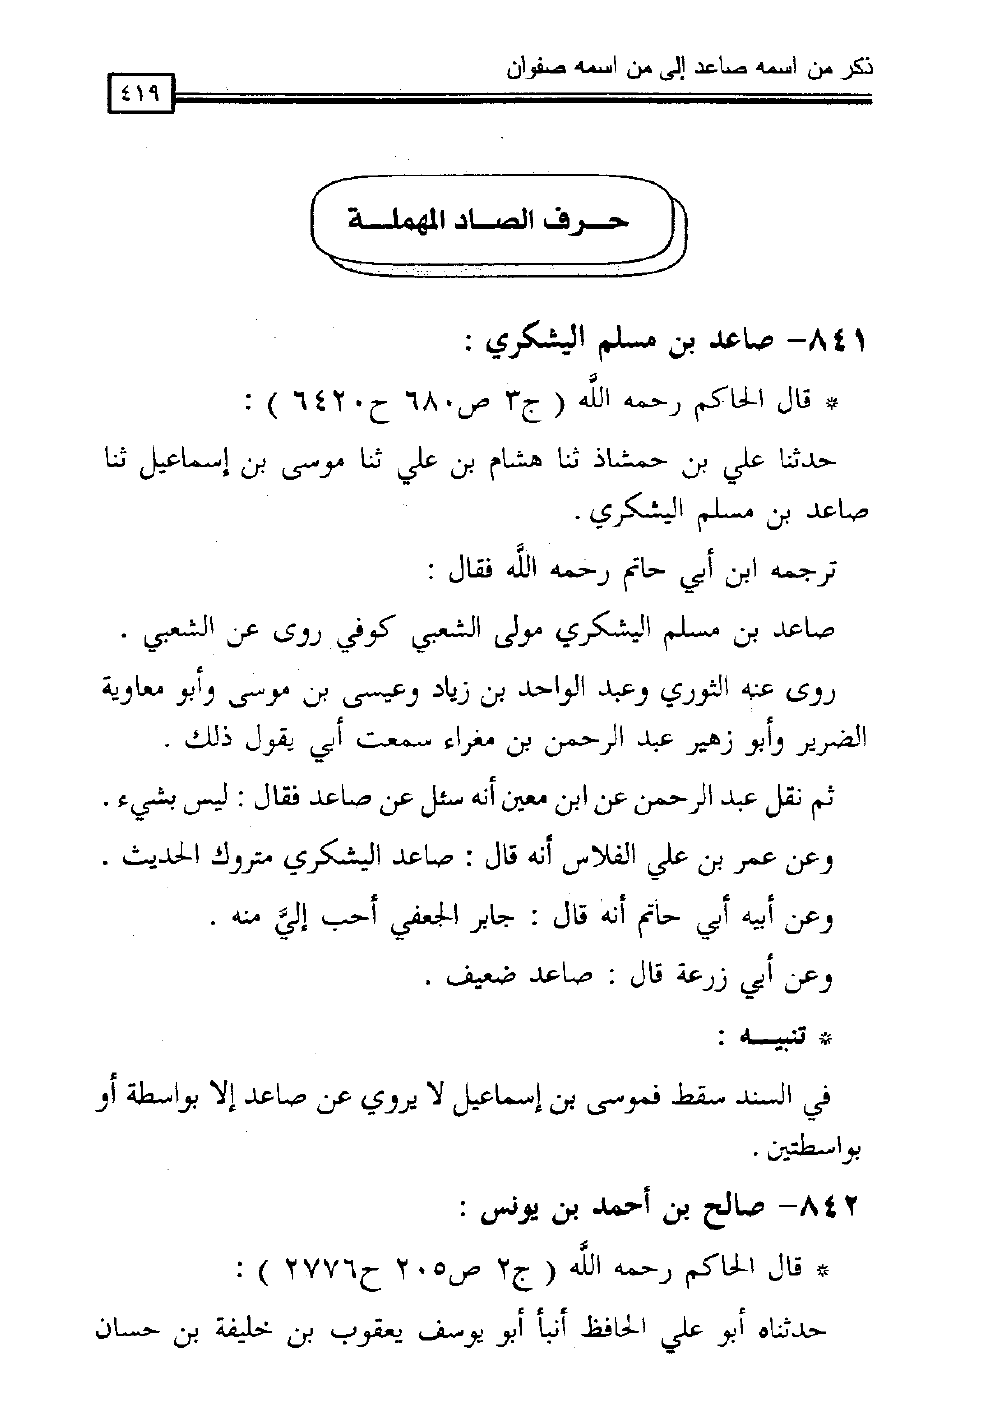 ذكر من اسمه صاعد إلى من اسمه صفوان
٤١٩
حـــرف الصـــاد المهملـــة
٨٤١- صاعد بن مسلم اليشكري :
* قال الحاكم رحمه اللَّه ( ج٣ ص٦٨٠ ح٦٤٢٠ ) :
حدثنا علي بن حمشاذ ثنا هشام بن علي ثنا موسى بن إسماعيل ثنا
صاعد بن مسلم اليشكري .
ترجمه ابن أبي حاتم رحمه اللَّه فقال :
صاعد بن مسلم اليشكري مولى الشعبي كوفي روى عن الشعبي .
روى عنه الثوري وعبد الواحد بن زياد وعيسى بن موسى وأبو معاوية
الضرير وأبو زهير عبد الرحمن بن مغراء سمعت أبي يقول ذلك .
ثم نقل عبد الرحمن عن ابن معين أنه سئل عن صاعد فقال : ليس بشيء .
وعن عمر بن علي الفلاس أنه قال : صاعد اليشكري متروك الحديث .
وعن أبيه أبي حاتم أنه قال : جابر الجعفي أحب إليَّ منه .
وعن أبي زرعة قال : صاعد ضعيف .
* تنبيـــه :
في السند سقط فموسى بن إسماعيل لا يروي عن صاعد إلا بواسطة أو
بواسطتين .
٨٤٢- صالح بن أحمد بن يونس :
* قال الحاكم رحمه اللَّه ( ج٢ ص٢٠٥ ح٢٧٧٦ ) :
حدثناه أبو علي الحافظ أنبأ أبو يوسف يعقوب بن خليفة بن حسان